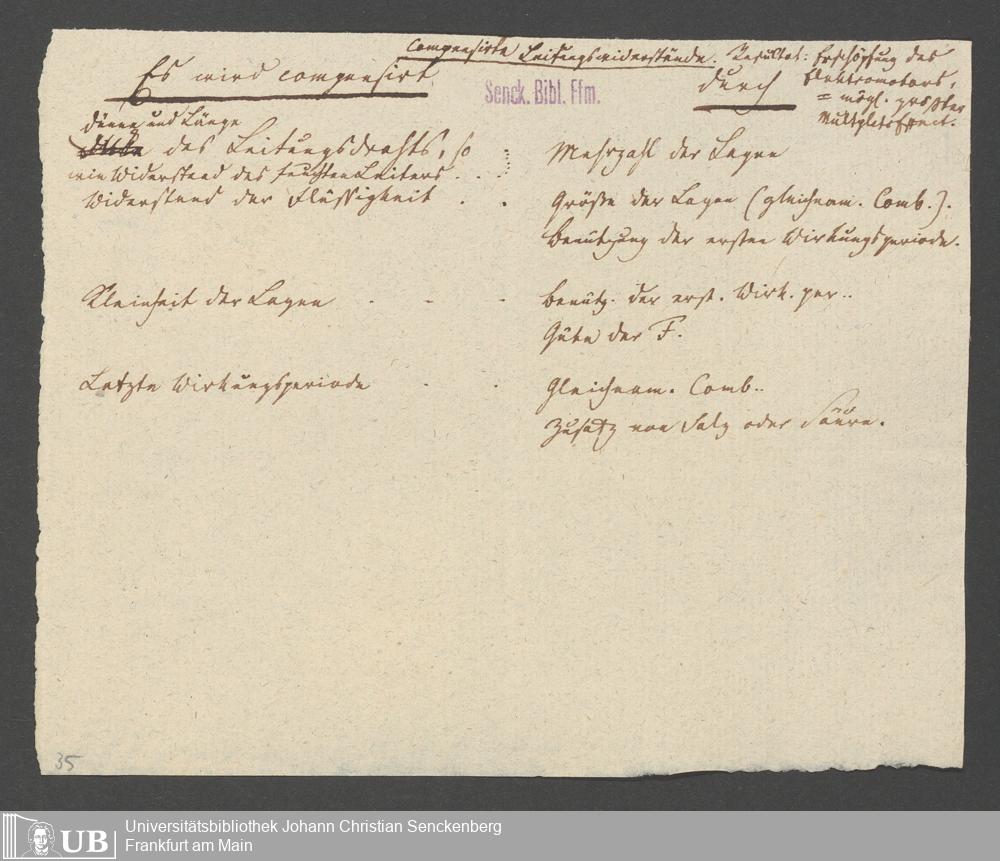 Compensirte Leitungswiderstände. Resultat: Erschöpfung des
Elektromotors,
= mögl. größter
Multpltsffect.
Es wird compensirt
durch
Senck. Bibl. Ffm.
Dünne und Länge
des Leitungsdrahts, so
wie Widerstand des feuchten Leiters . . .
Mehrzahl der Lagen
Widerstand der Flüssigkeit . .
Größe der Lagen (gleichnam. Comb.).
Benützung der ersten Wirkungsperiode.
Kleinheit der Lagen . - -
Benütz. der erst. Wirk. per..
Güte der F.
Letzte Wirkungsperiode . .
Gleichnam. Comb..
Zusatz von Salz oder Säure.
35
UB
Universitätsbibliothek Johann Christian Senckenberg
Frankfurt am Main